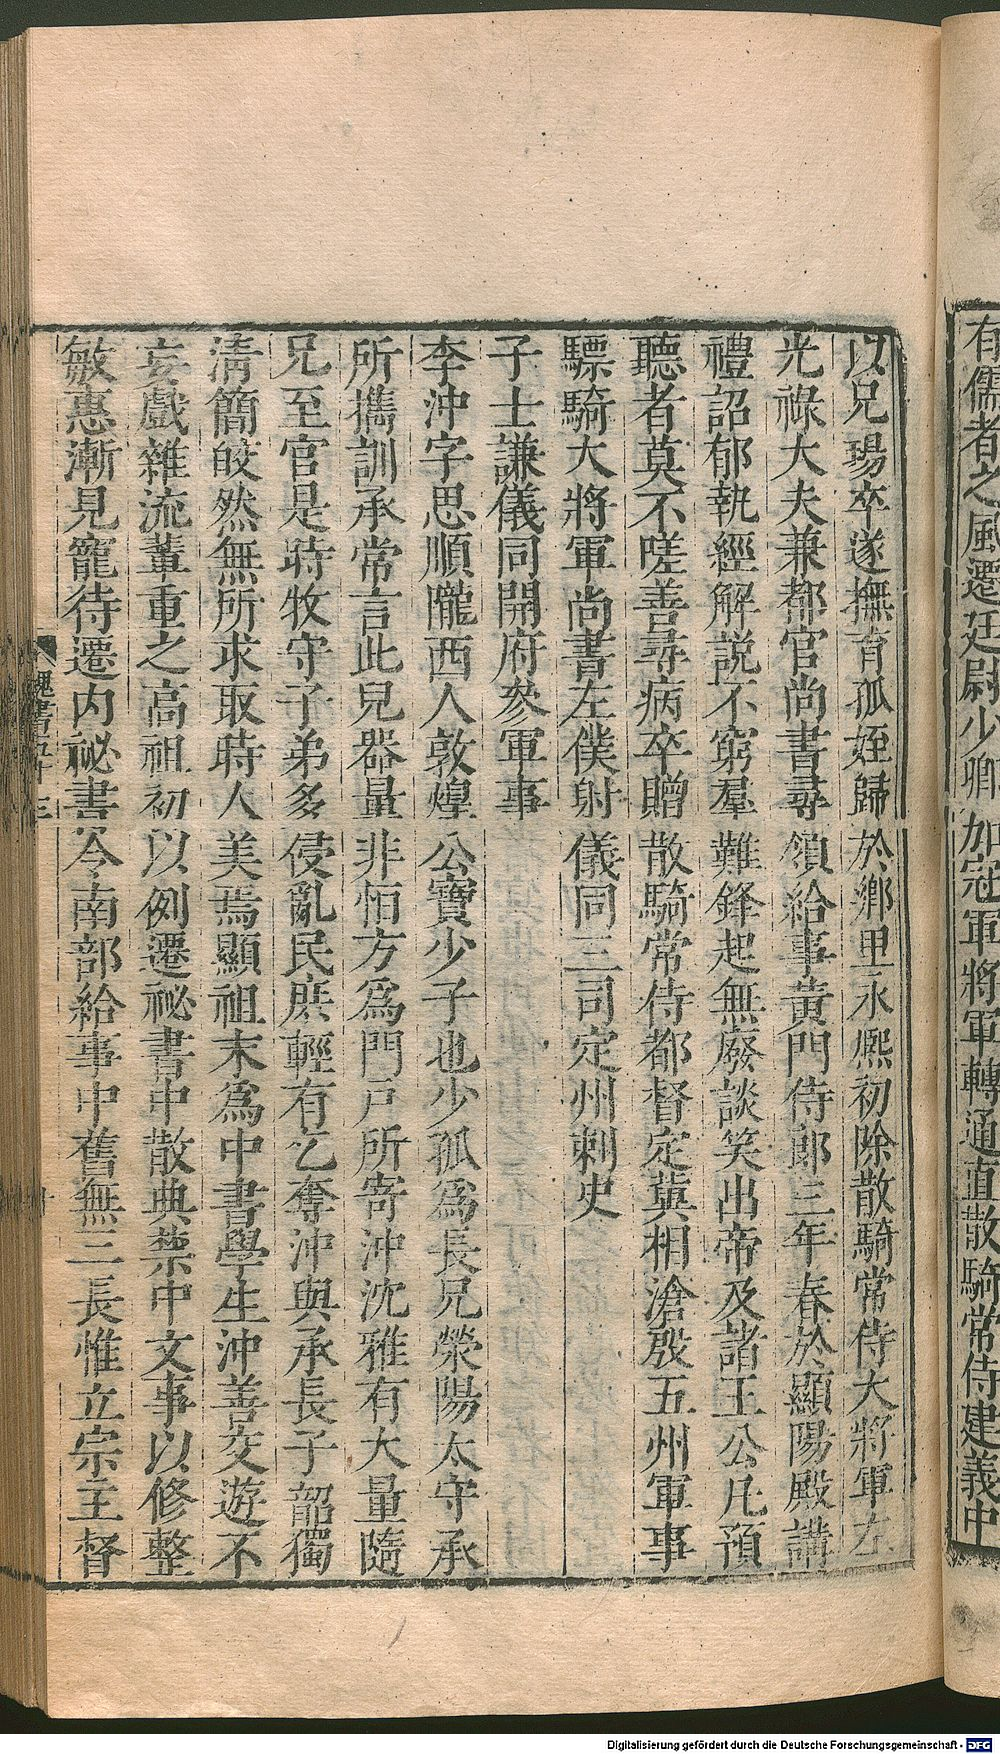 有儒者之風遷廷尉少卿加冠軍將軍轉通直散騎常侍建義中
以兄瑒卒遂撫育孤姪歸於鄉里永熙初除散騎常侍大將軍左
光祿大夫兼都官尚書尋領給事黃門侍郎三年春於顯陽殿講
禮詔郁執經解說不窮羣難鋒起無廢談笑出帝及諸王公凡預
聽者莫不嗟善尋病卒贈散騎常侍都督定冀相滄殷五州軍事
驃騎大將軍尚書左僕射儀同三司定州刺史
子士謙儀同開府參軍事
李沖字思順隴西人敦煌公寶少子也少孤為長兄滎陽太守承
所攜訓承常言此兒器量非恒方為門戶所寄沖沈雅有大量隨
兄至官是時牧守子弟多侵亂民庶輕有乞奪沖與承長子韶獨
清簡皎然無所求取時人美焉顯祖末為中書學生沖善交遊不
妄戲雜流輩重之高祖初以例遷祕書中散典禁中文事以修整
敏惠漸見寵待遷內祕書令南部給事中舊無三長惟立宗主督
魏書五十三
Digitalisierung gefördert durch die Deutsche Forschungsgemeinschaft - DFG